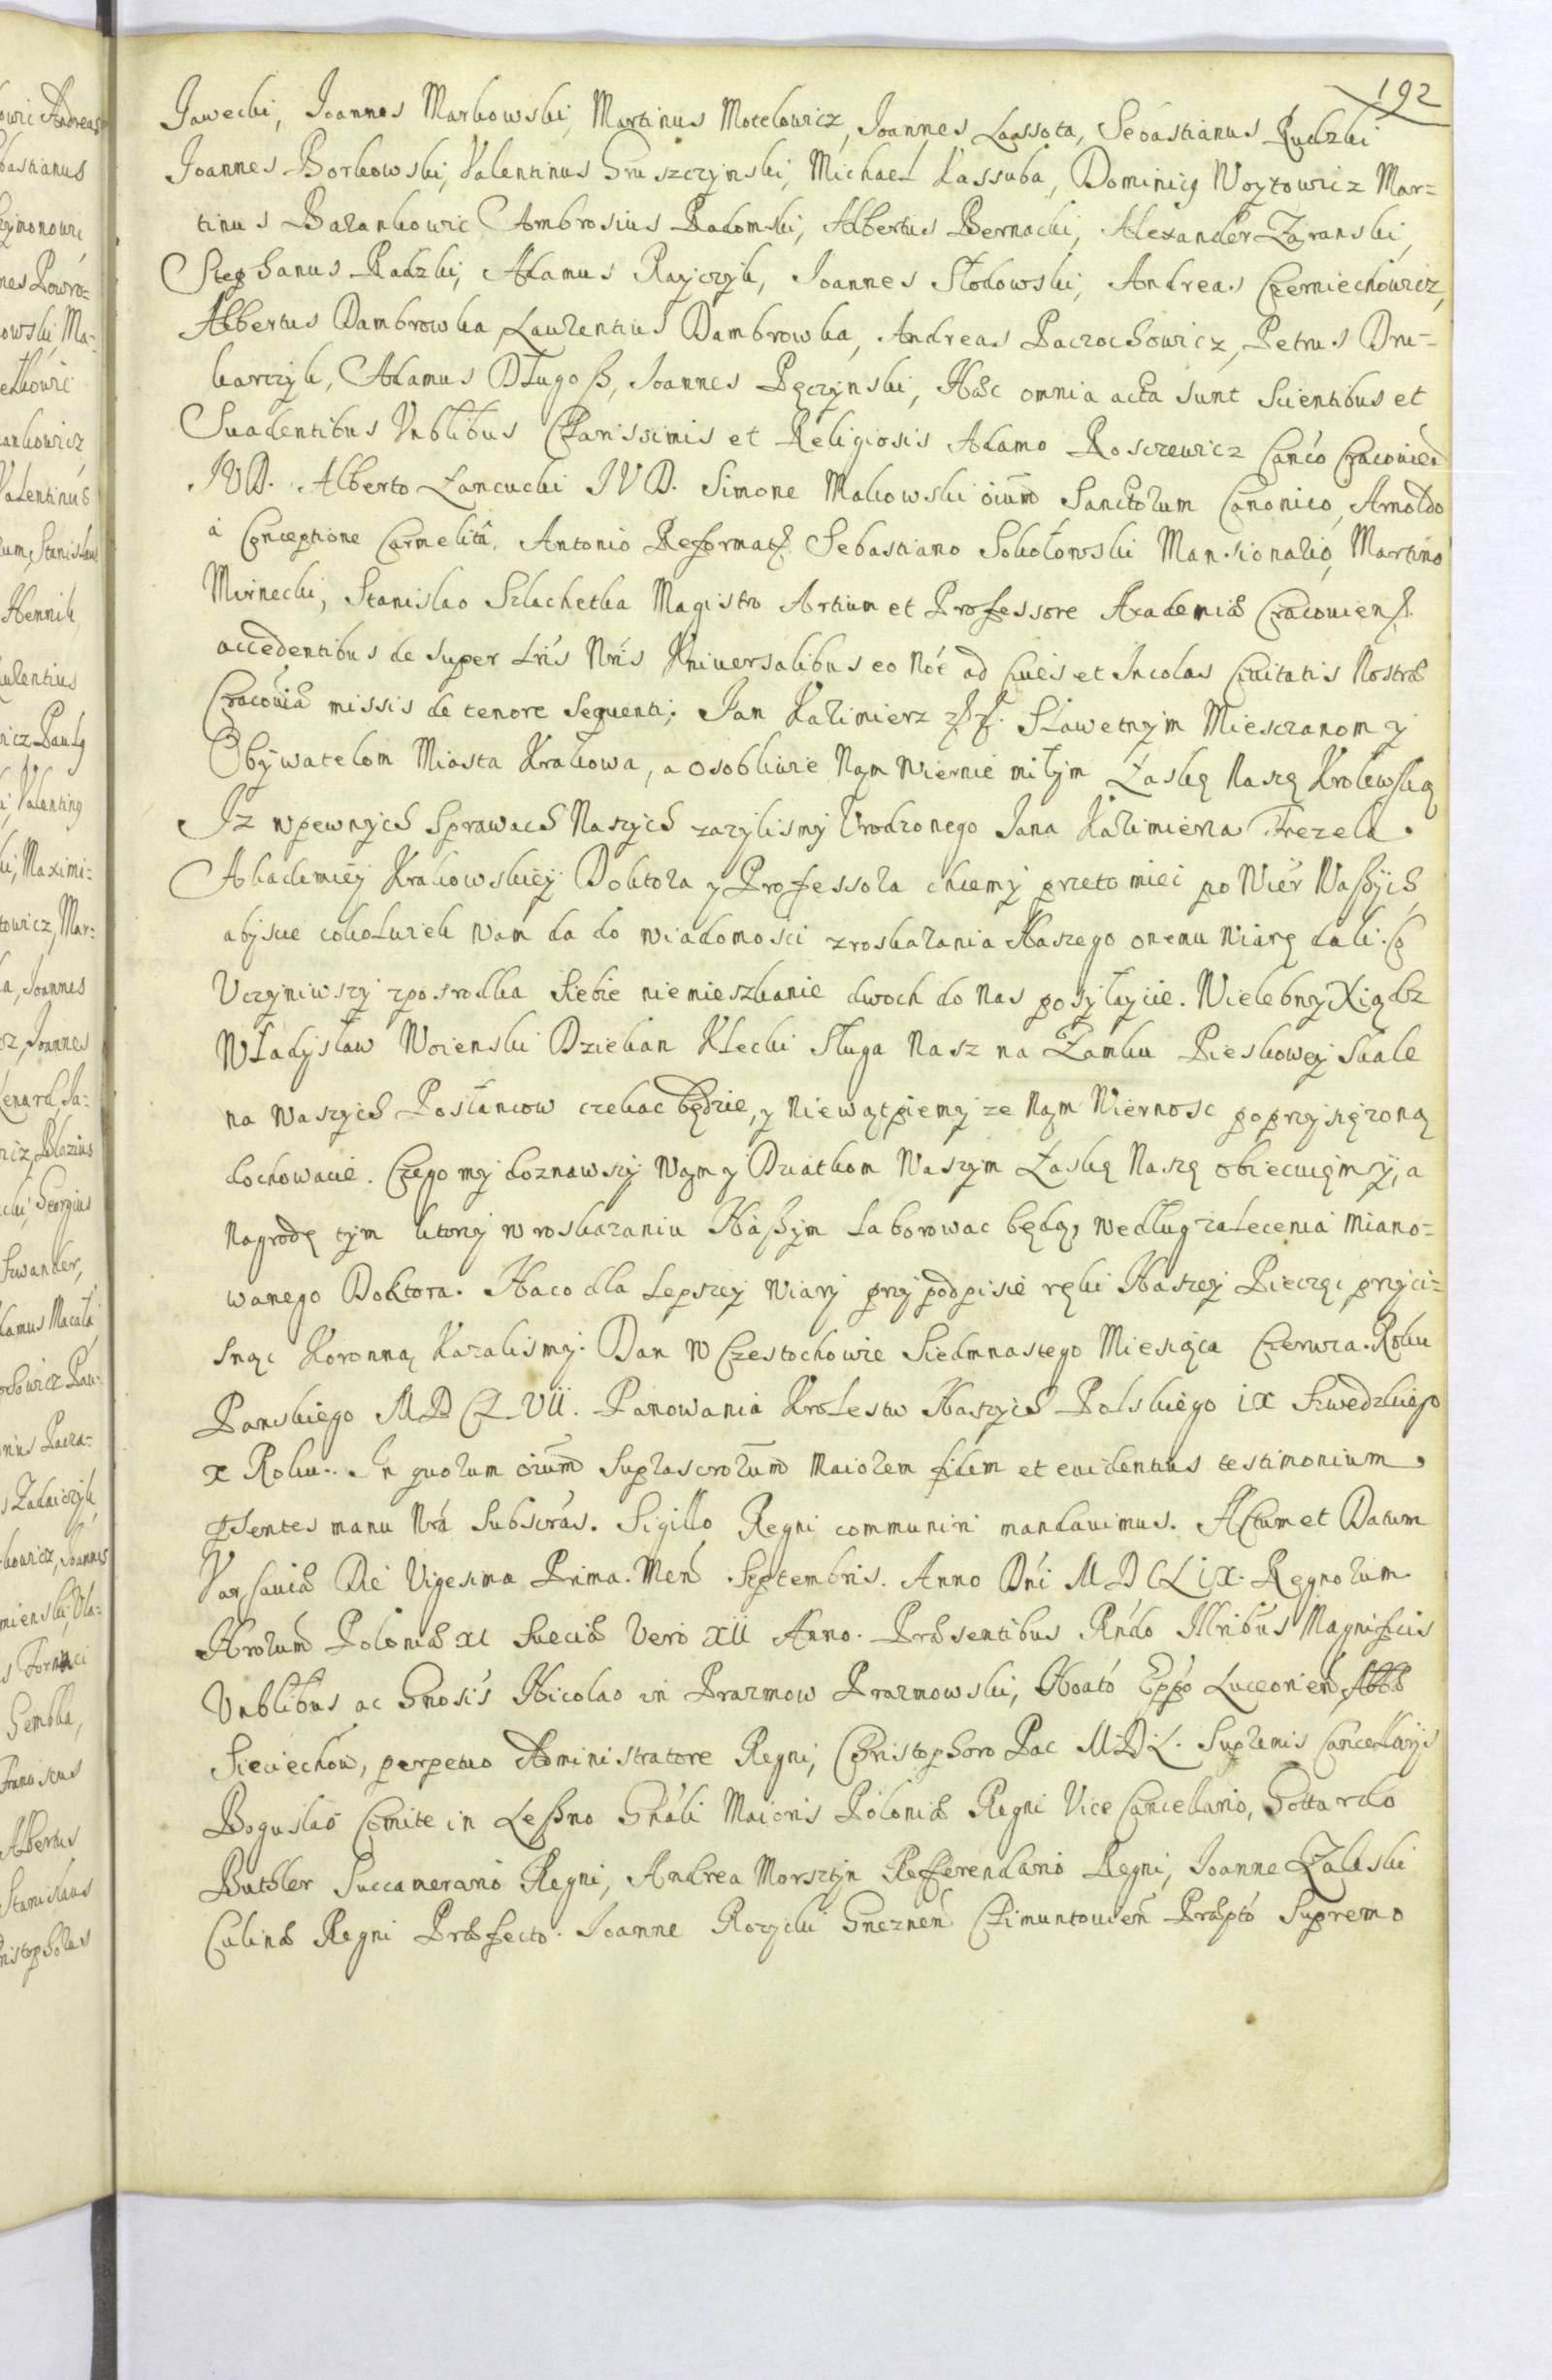 192
Jawecki, Joannes Markowski, Martinus Motelowicz, Joannes Lassota, Sebastianus Rudzki
Joannes Borkowski, Valentinus Gruszczynski, Michael Kassuba, Dominicq Woytowicz Mar=
tinus Barankowic Ambrosius Radomski, Albertus Bernacki, Alexander Zaranski,
Stephanus Radzki, Adamus Rayczyk, Joannes Słodowski, Andreas Czerniechowicz,
Albertus Dambrowka Laurentius Dambrowka, Andreas Paczochowicz, Petrus Dru=
karczyk, Adamus Długoß, Joannes Pęczynski, Hæc omnia acta sunt Scientibus et
Suadentibus Vnblibus Clarissimis et Religiosis Adamo Roszewicz Canco Cracovień
IVD. Alberto Łancucki IVD. Simone Makowski oium Sanctorum Canonico, Arnoldo
a Conceptione Carmelita, Antonio Reformat. Sebastiano Sokołowski Mansionario, Martino
Mirnecki, Stanislao Szlachetka Magistro Artium et Professore Academiæ Cracouien.
accedentibus de super Lris Nris Vniuersalibus eo Noe ad Ciues et Incolas Ciuitatis Nostræ
Cracouiæ missis de tenore sequenti; Jan Kazimierz etc. Sławetnym Miesczanom y
Obywatelom Miasta Krakowa, a osobliwie Nam wiernie miłym Łaskę Naszę Krolewską
Iz w pewnych Sprawach Naszych zazylismy Vrodzonego Jana Kazimierza Frezela
Akademiey Krakowskiey Doktora y Professora chcemy przeto miec po Wier Waßych
abyscie cokolwiek wam da do wiadomosci z roskazania Naszego onemu wiarę dali. Co
Vczyniwszy zposrodka Siebie niemieszkanie dwoch do Nas posyłaycie. Wielebny Xiądz
Władysław Woienski Dziekan Klecki Sługa Nasz na Zamku Pieskowey Skale
na Waszych Posłancow czekac będzie, y niewątpiemy ze Nam Wiernosc poprzysięzoną
dochowacie. Czego my doznawszy Wam y Dziatkom Waszym Łaskę Naszę obiecuiemy, a
nagrodę tym ktory w roskazaniu Naßym laborowac będą, według zalecenia miano=
wanego Doktora. Naco dla lepszey wiary przy podpisie ręki Naszey Pieczęc przyci=
snąc Koronną Kazalismy. Dan w Czestochowie Siedmnastego Miesiąca Czerwca. Roku
Panskiego MDCLVII. Panowania Krolestw Naszych Polskiego IX Szwedzkiego
X Roku. In quorum oium suprascrorum maiorem fidem et euidentius testimonium
psentes manu Nra Subscras. Sigillo Regni communiri mandauimus. Actum et Datum
Varsauiæ Die Vigesima Prima. Men Septembris. Anno Dni MDCLIX. Regnorum
Nrorum Poloniæ XI Sueciæ Vero XII Anno. Præsentibus Rndo Illribus Magnificis
Vnblibus ac Gnosis Nicolao in Prazmow Prazmowski, Noato Eppo Luceorien, Abbæ
Sieciechow, perpetuo Administratore Regni, Christophoro Pac M.D.L. Supremis Cancellarijs
Boguslao Comite in Leßno Gnali Maioris Poloniæ Regni Vice Cancellario, Gottardo
Buthler Succamerario Regni, Andrea Morsztyn Refferendario Regni, Joanne Zaleski
Culinæ Regni Præfecto. Joanne Rozycki Gneznen Czimuntouien Præpto Supremo